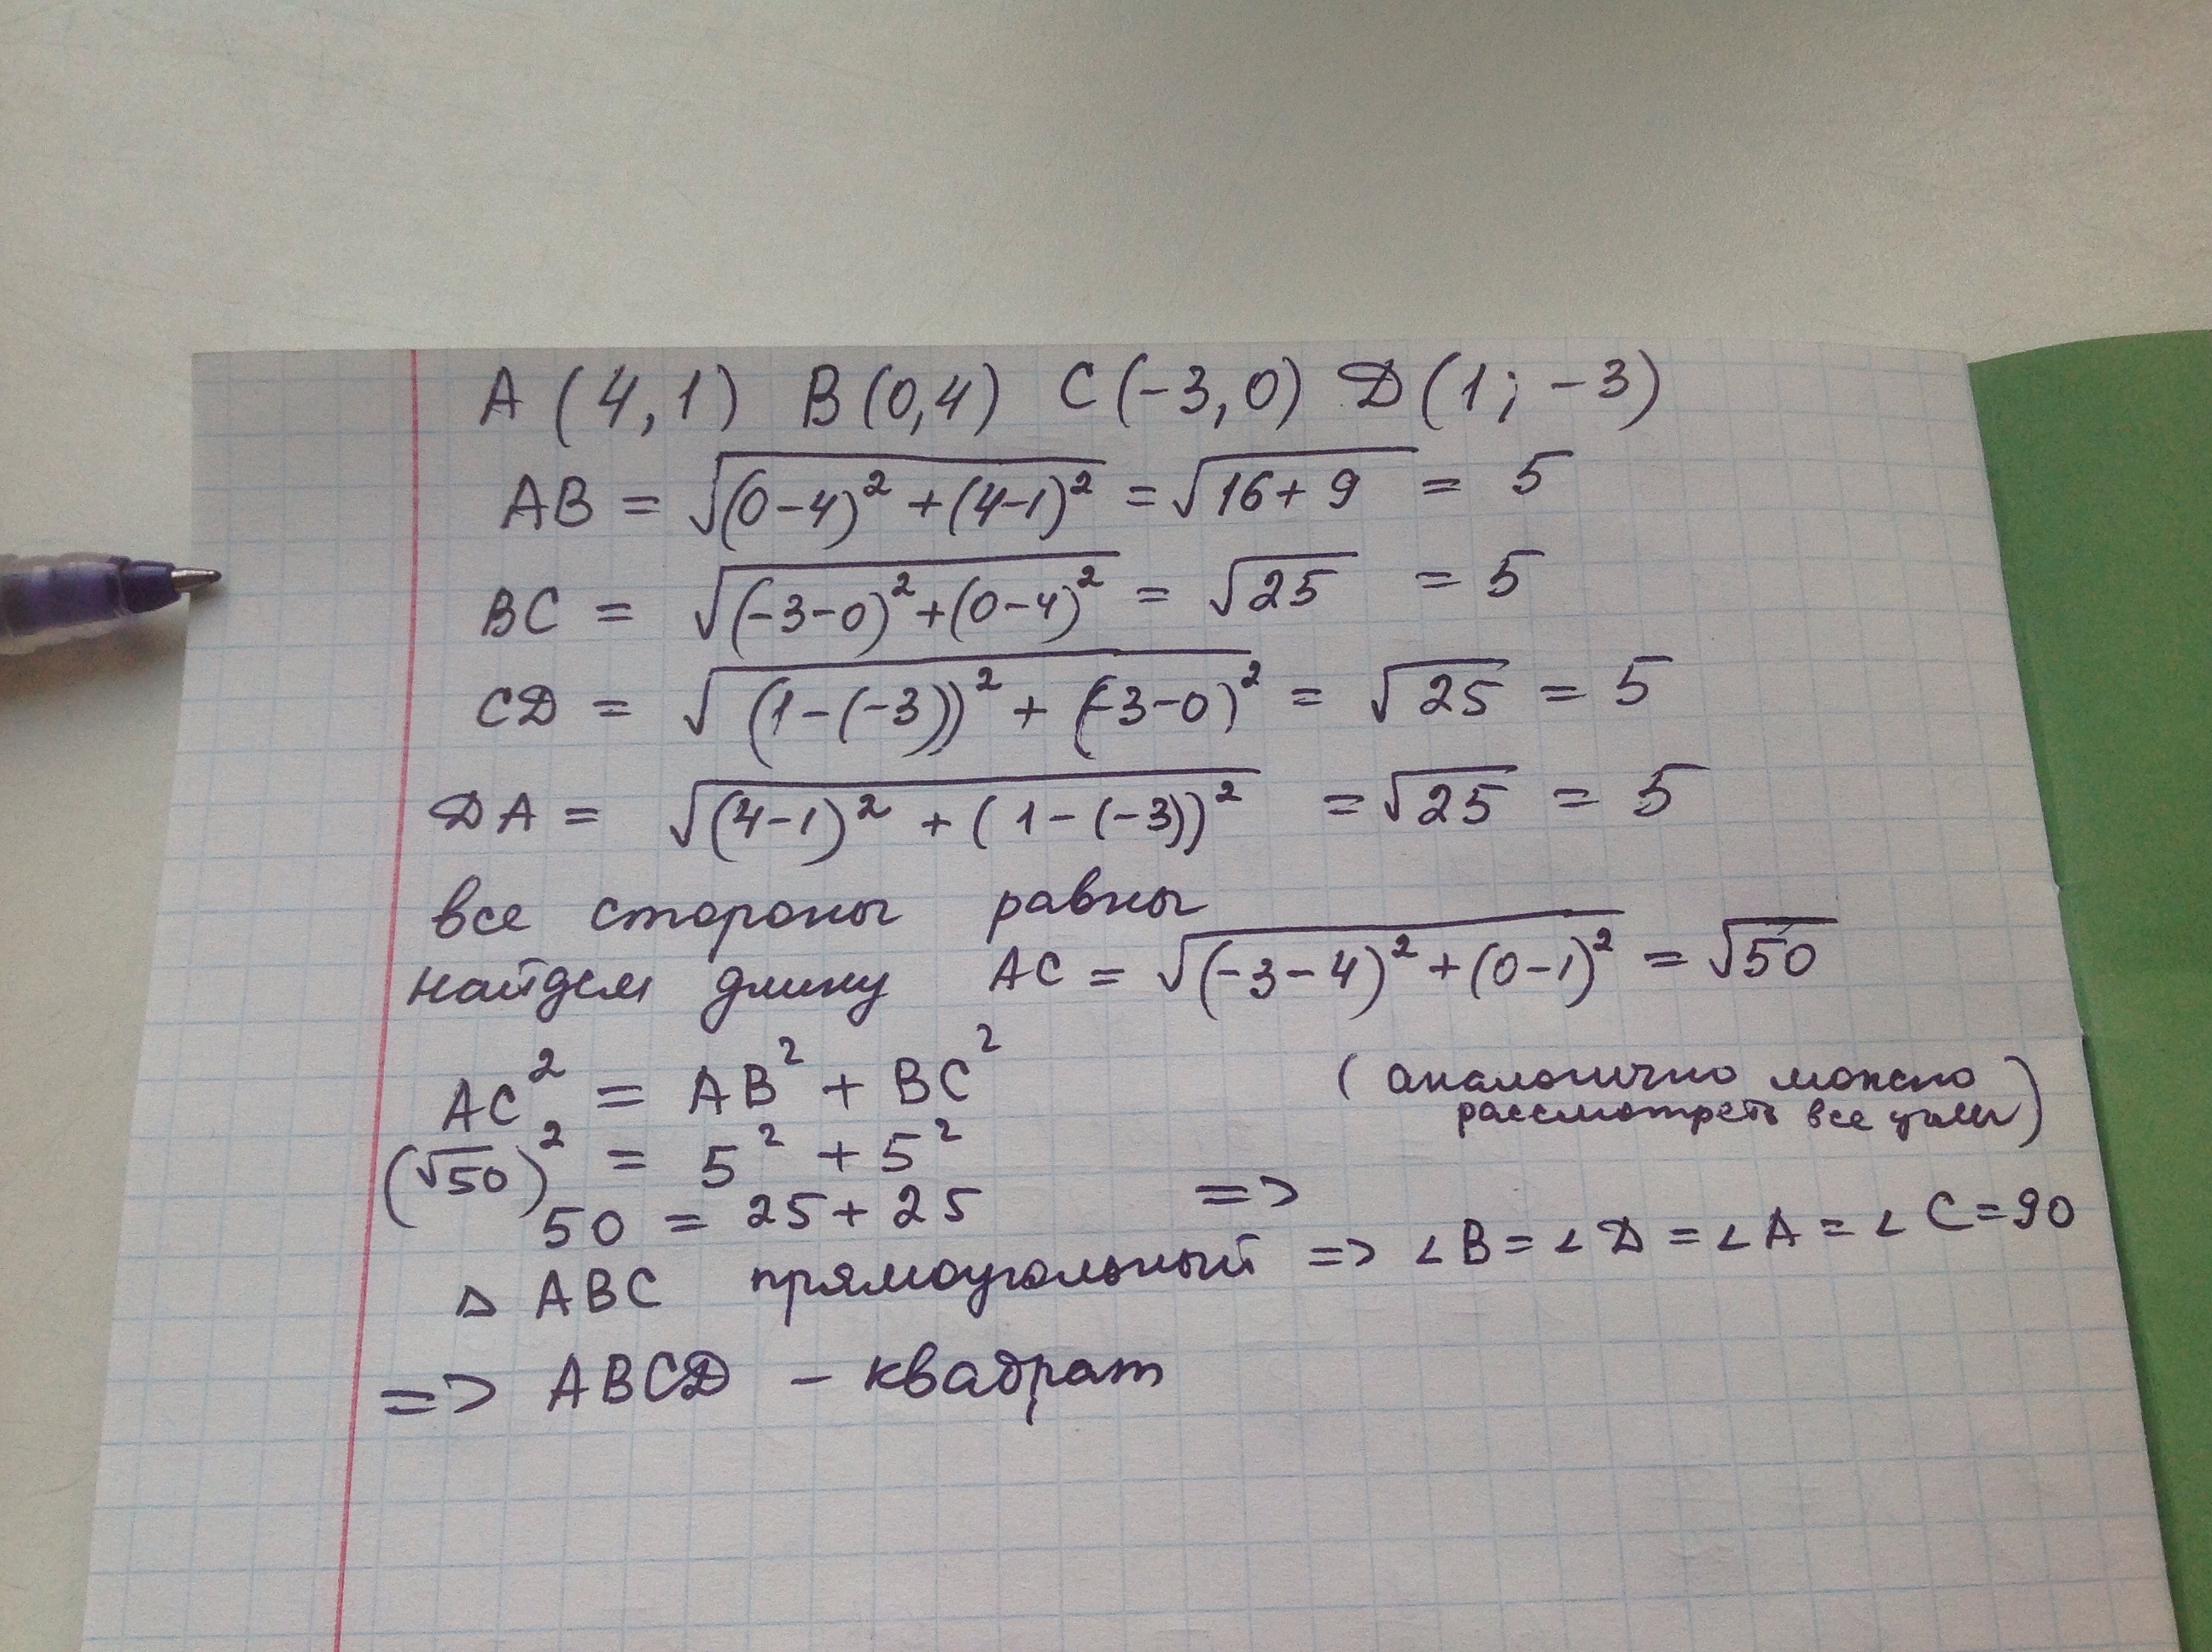 A (4,1) B(0,4) C(-3,0) D(1; -3)
AB = √((0-4)² + (4-1)²) = √(16+9) = 5
BC = √((-3-0)² + (0-4)²) = √25 = 5
CD = √((1-(-3))² + (-3-0)²) = √25 = 5
DA = √((4-1)² + (1-(-3))²) = √25 = 5
все стороны равны
найдем длину AC = √((-3-4)² + (0-1)²) = √50
AC² = AB² + BC²
(аналогично можно
рассмотреть все углы)
(√50)² = 5² + 5²
50 = 25 + 25 =>
△ ABC прямоугольный => ∠B = ∠D = ∠A = ∠C = 90
=> ABCD - квадрат